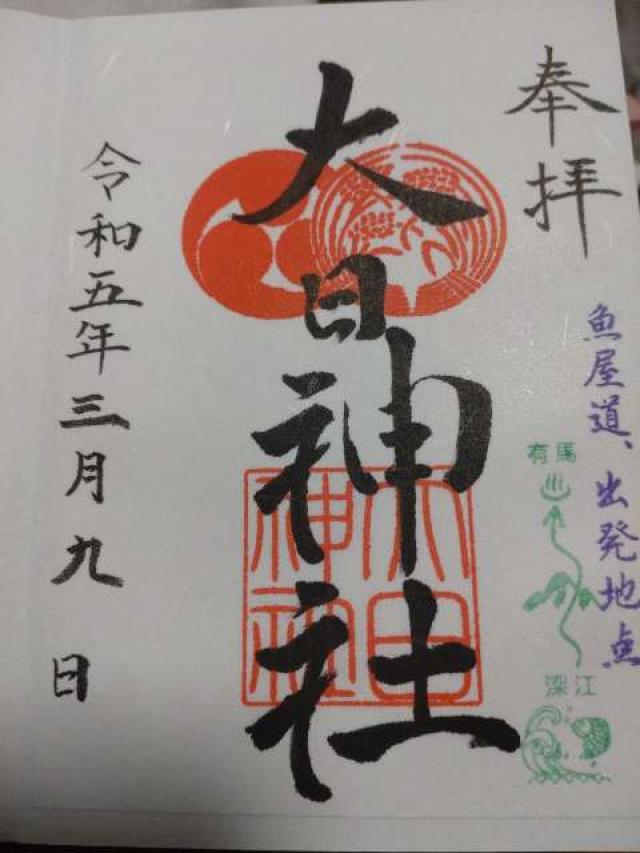 奉拝
魚屋道、出発地点
有馬
深江
大日神社
大日神社
令和五年三月九日